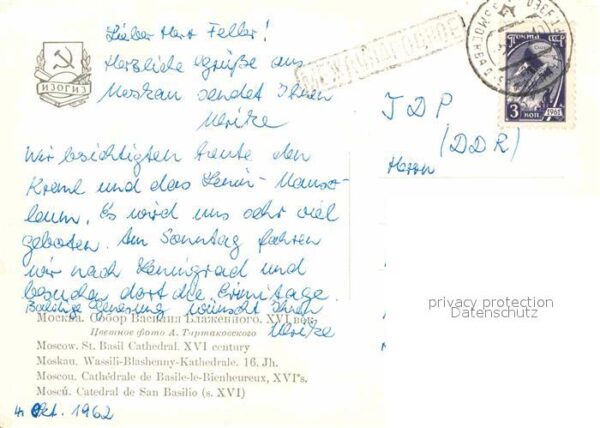 Lieber Herr Feller!
Herzliche Grüße aus
Moskau sendet Ihnen
Ulrike
Wir besichtigten heute den
Kreml und das Lenin-Mauso-
laum. Es wird uns sehr viel
geboten. Am Sonntag fahren
wir nach Leningrad und
besuchen dort die Ermitage.
Baldige Genesung wünscht Ihnen
Ulrike
4. Okt. 1962
ИЗОГИЗ
Москва. Собор Василия Блаженного. XVI век.
Цветное фото А. Тартаковского
Moscow. St. Basil Cathedral. XVI century
Moskau. Wassili-Blashenny-Kathedrale. 16. Jh.
Moscou. Cathédrale de Basile-le-Bienheureux, XVI's.
Moscú. Catedral de San Basilio (s. XVI)
МЕЖДУНАРОДНОЕ
ПОЧТА СССР
3 коп
1961
JDP
(DDR)
Herrn
privacy protection
Datenschutz